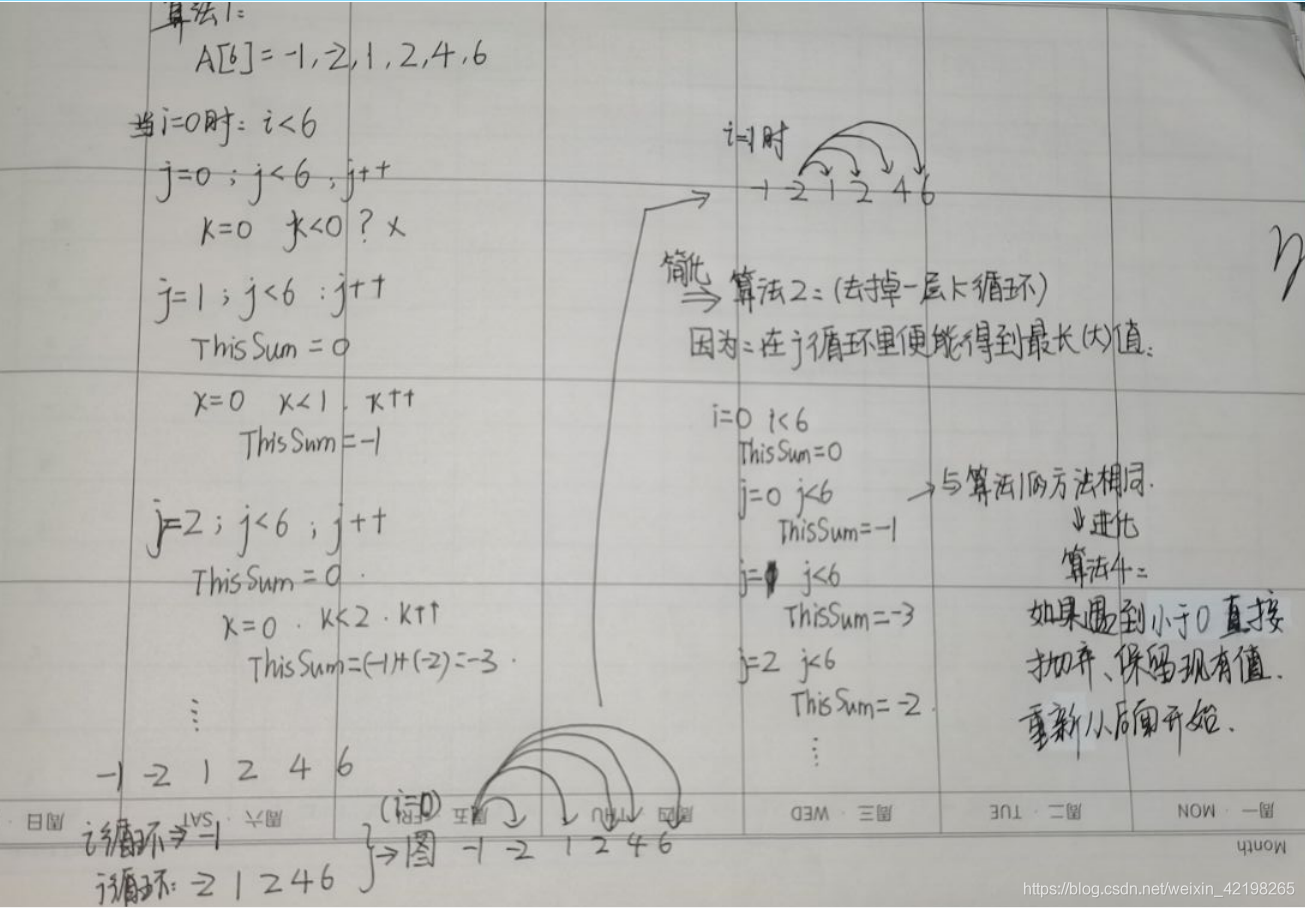 算法1:
A[6]=-1,-2,1,2,4,6
当i=0时: i<6
j=0 ; j<6 ; j++
k=0 k<0 ? ×
j=1 ; j<6 : j++
ThisSum=0
k=0 k<1 . k++
ThisSum=-1
j=2 ; j<6 ; j++
ThisSum=0 .
k=0 . k<2 . k++
ThisSum=(-1)+(-2)=-3 .
-1 -2 1 2 4 6
i循环⇒-1
j循环: -2 1 2 4 6
→图
(i=0)
-1 -2 1 2 4 6
i=1时
-1 -2 1 2 4 6
简化
⇒ 算法2:(去掉一层k循环)
因为:在j循环里便能得到最长(大)值:
i=0 i<6
ThisSum=0
j=0 j<6
ThisSum=-1
j=1 j<6
ThisSum=-3
j=2 j<6
ThisSum=-2 .
→与算法1的方法相同.
↓进化
算法4:
如果遇到小于0直接
抛弃、保留现有值.
重新从后面开始.
周日 · 周六 · SAT 周五 · FRI 周四 · THU 周三 · WED 周二 · TUE 周一 · MON
Month
https://blog.csdn.net/weixin_42198265